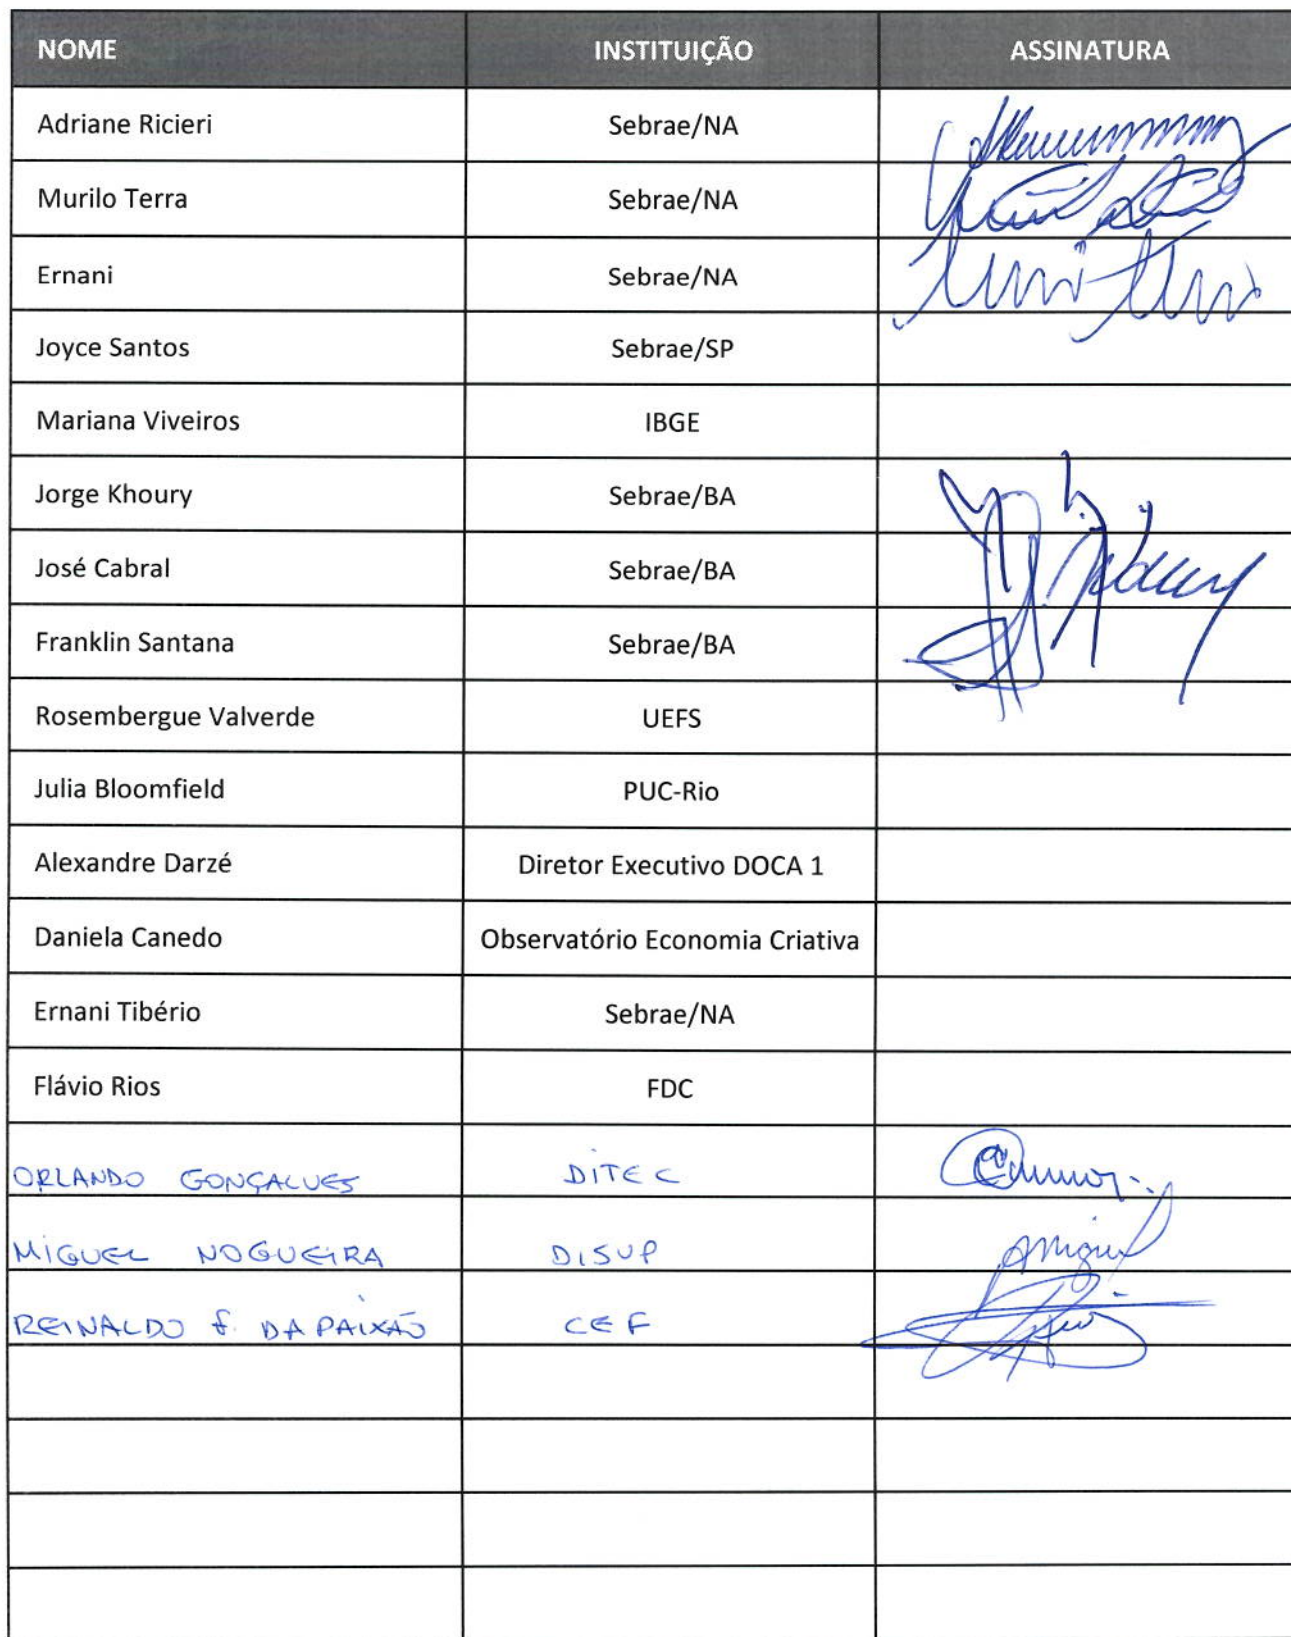 NOME INSTITUIÇÃO ASSINATURA
Adriane Ricieri Sebrae/NA
Murilo Terra Sebrae/NA
Ernani Sebrae/NA
Joyce Santos Sebrae/SP
Mariana Viveiros IBGE
Jorge Khoury Sebrae/BA
José Cabral Sebrae/BA
Franklin Santana Sebrae/BA
Rosembergue Valverde UEFS
Julia Bloomfield PUC-Rio
Alexandre Darzé Diretor Executivo DOCA 1
Daniela Canedo Observatório Economia Criativa
Ernani Tibério Sebrae/NA
Flávio Rios FDC
ORLANDO GONÇALVES DITEC
MIGUEL NOGUEIRA DISUP
REINALDO F. DA PAIXÃO CEF